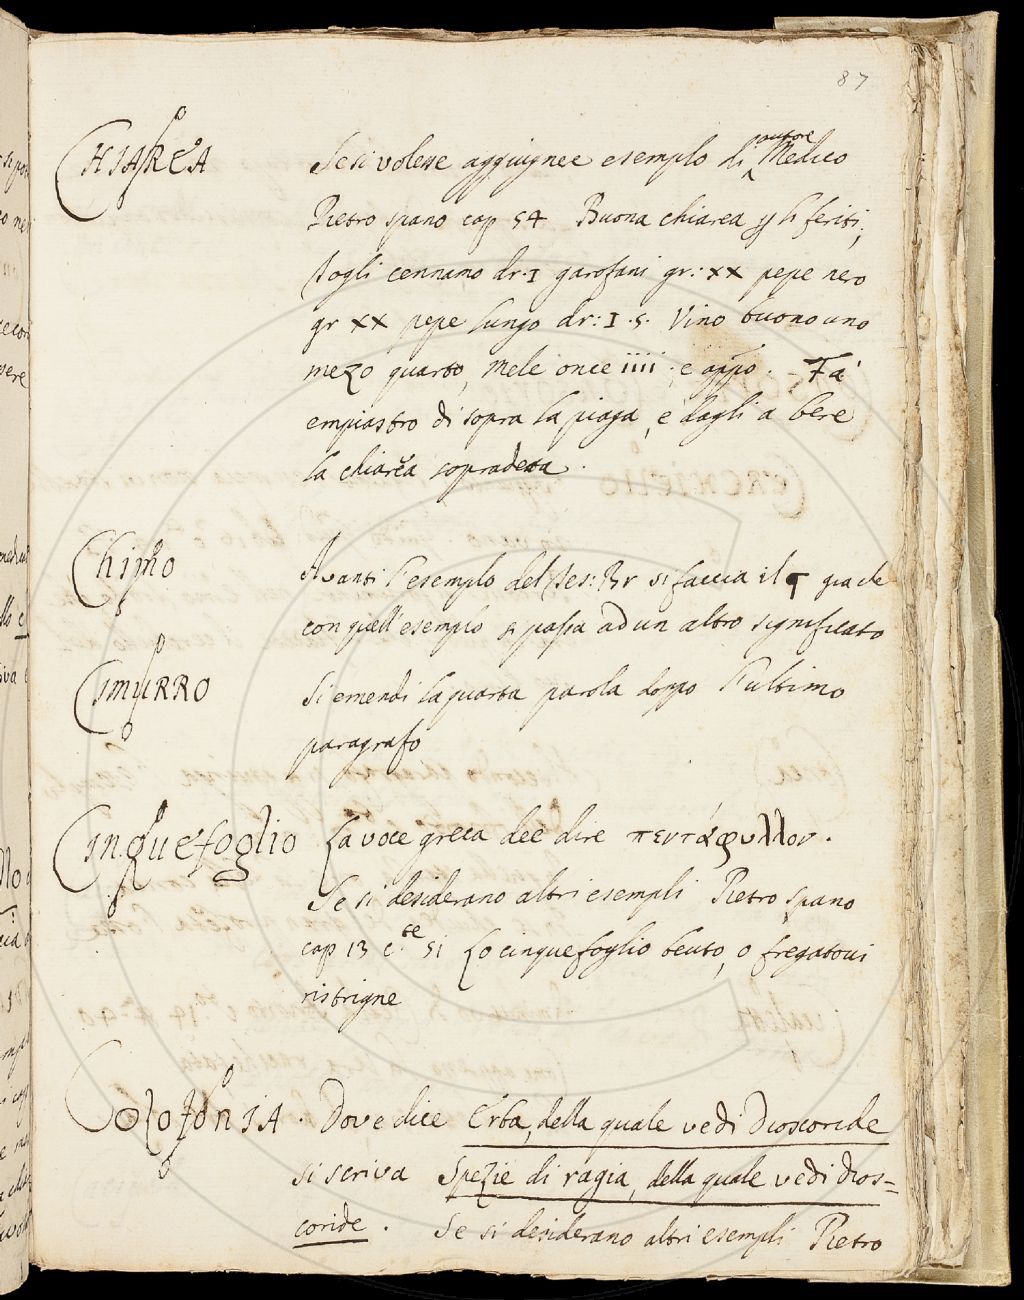 87
CHIAREA Se si volesse aggiugnere esemplo di autore Medico
Pietro spano cap 54 Buona chiarea p li feriti;
Togli cennamo dr. I garofani gr: XX pepe nero
gr XX pepe lungo dr: I .s. Vino buono uno
mezo quarto, Mele once iiii, e appo. Fa
empiastro di sopra la piaga, e dagli a bere
la chiarea sopradetta.
Chimo Avanti l'esemplo del Tes: Br si faccia il ¶ gia che
con quell'esemplo si passa ad un altro significato
CimuRRO Si emendi la quarta parola doppo l'ultimo
paragrafo
Cinquefoglio La voce greca dee dire πεντάφυλλον.
Se si desiderano altri esempli Pietro spano
cap 13 c.te 51 Lo cinquefoglio beuto, o fregatovi
ristrigne
ColofoniA. Dove dice Erba, della quale vedi Dioscoride
si scriva Spezie di ragia, della quale vedi Dios=
coride. Se si desiderano altri esempli Pietro